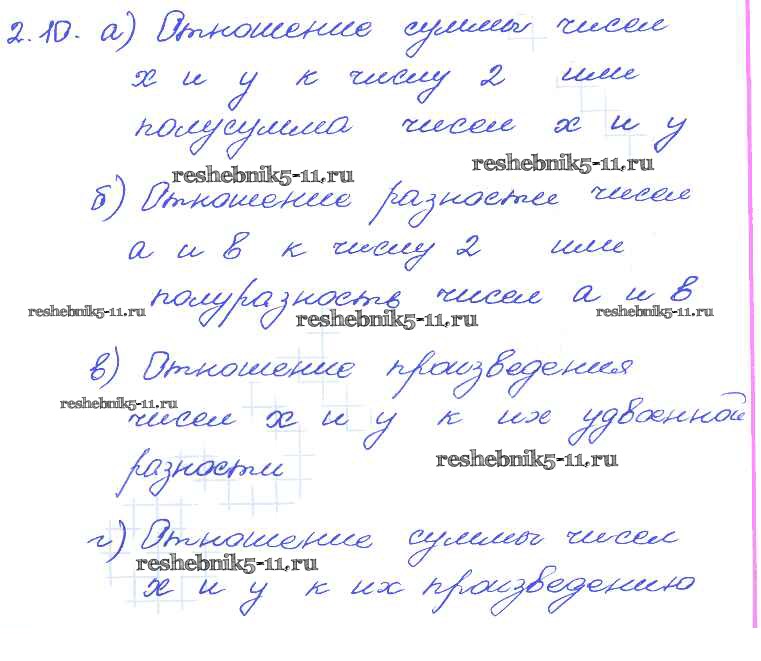 2.10. а) Отношение суммы чисел
х и у к числу 2 или
полусумма чисел х и у
reshebnik5-11.ru reshebnik5-11.ru
б) Отношение разности чисел
а и в к числу 2 или
полуразность чисел а и в
reshebnik5-11.ru reshebnik5-11.ru reshebnik5-11.ru
в) Отношение произведения
reshebnik5-11.ru
чисел х и у к их удвоенной
разности
reshebnik5-11.ru
г) Отношение суммы чисел
reshebnik5-11.ru
х и у к их произведению